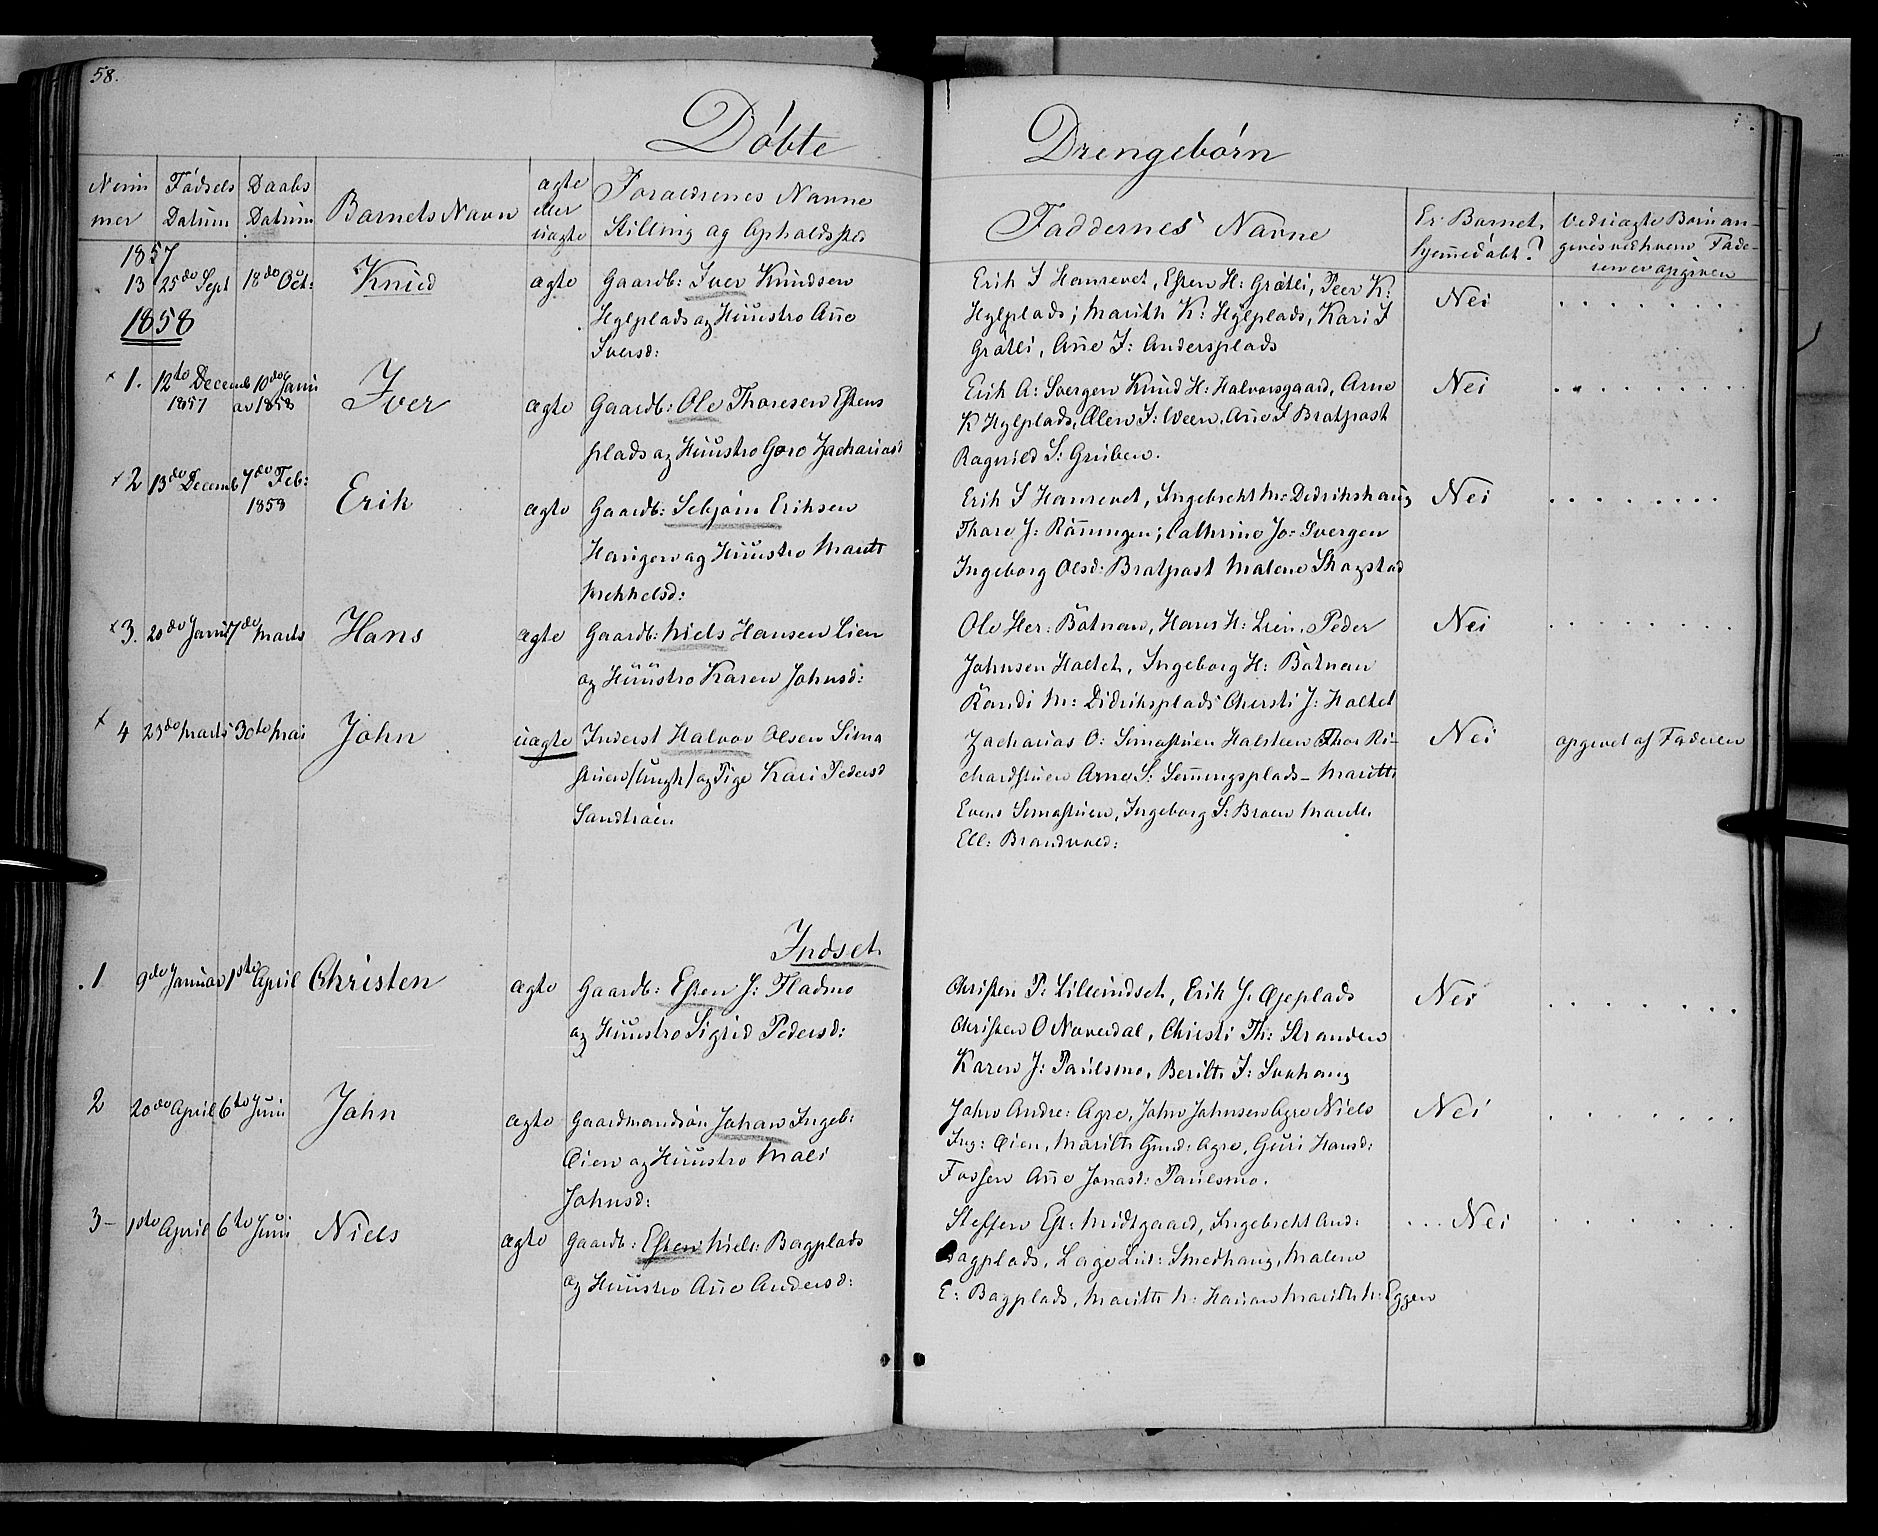 58.
Döbte Drengebörn
Num
mer
Födsels
Datum
Daabs
Datum
Barnets Navn
ægte
eller
uægte
Forældrenes Navne
Stilling og Opholdsted
Faddernes Navne
Er Barnet
hjemmedöbt?
Ved uægte Börn an-
gives ved hvem Fade-
ren er opgiven
1857
13 25de Sept 18de Oct: Knud ægte Gaardb: Iver Knudsen
Hylplads og Hustro Ane
Iversd:
Hansevet, Esten H: Grötli, Peer K:
Hylplads; Marith K: Hylplads, Kari I
Grötli, Ane I: Andersplads
Nei
1858
1. 12te Decemb 1857 10de Janu
ar 1858 Iver ægte Gaardb: Ole Thoresen Estens
plads og Hustro Goro Zachariasd
Erik A: Svergen Knud H: Halvorsgaard, Arne
K Hylplads, Ane I Bratpast
Ragnild S: Gruben.
Nei
2 13de Decemb 7de Feb:
1858 Erik ægte Gaardb: Sebjörn Eriksen
Haugen og Hustro Marit
Erik I Hansevet, Ingebrekt M: Didrikshaug
Thore J: Rönningen; Cathrine Jo: Svergen
Ingeborg Olsd: Bratpast Malene Skogstad
Nei
3. 20de Janu 7de Marts Hans ægte Gaardb: Niels Hansen Lien
og Hustro Karen Johnsd:
Ole Her: Bötnan, Hans H: Lien, Peder
Johnsen Holtet, Ingeborg H: Bötnan
Randi M: Didriksplads Chersti J: Holtet
Nei
4 23de Marts 30te Mai John uægte Inderst Halvor Olsen Sima
stuen (Ungk) og Pige Kari Pedersd
Sandtröen
Zacharias O: Simastuen Halsteen Thor Ri-
chardstuen Arne S: Semingsplads - Marith
Evens Simastuen, Ingeborg S: Broen Marith
Ell: Brandvold:
Nei opgivet af Faderen
Indset
1 9de Januar 1ste April Christen ægte Gaardb: Esten J: Fladmo
og Hustro Sigrid Pedersd:
Christen P: Lilleindset, Erik J. Øjeplads
Christen O Naverdal, Chersti Th: Stranden
Karen J: Paulsmo, Berith I:
Nei
2 20de April 6te Juni John ægte Gaardmandsön Johan Ingeb:
Øien og Hustro Mali
Johnsd:
John Andre: Agre, John Johnsen Agre Niels
Ing: Øien, Marith Gund: Agre, Guri Hansd:
Fossen Ane Jonasd: Paulsmo.
Nei
3 1ste April 6te Juni Niels ægte Gaardb: Esten Niels: Bagplads
og Hustro Ane Andersd:
Steffen Est: Midtgaard, Ingebrekt And:
Bagplads, Smedhaug, Malene
E: Bagplads, Marith N: Marith N: Eggen
Nei